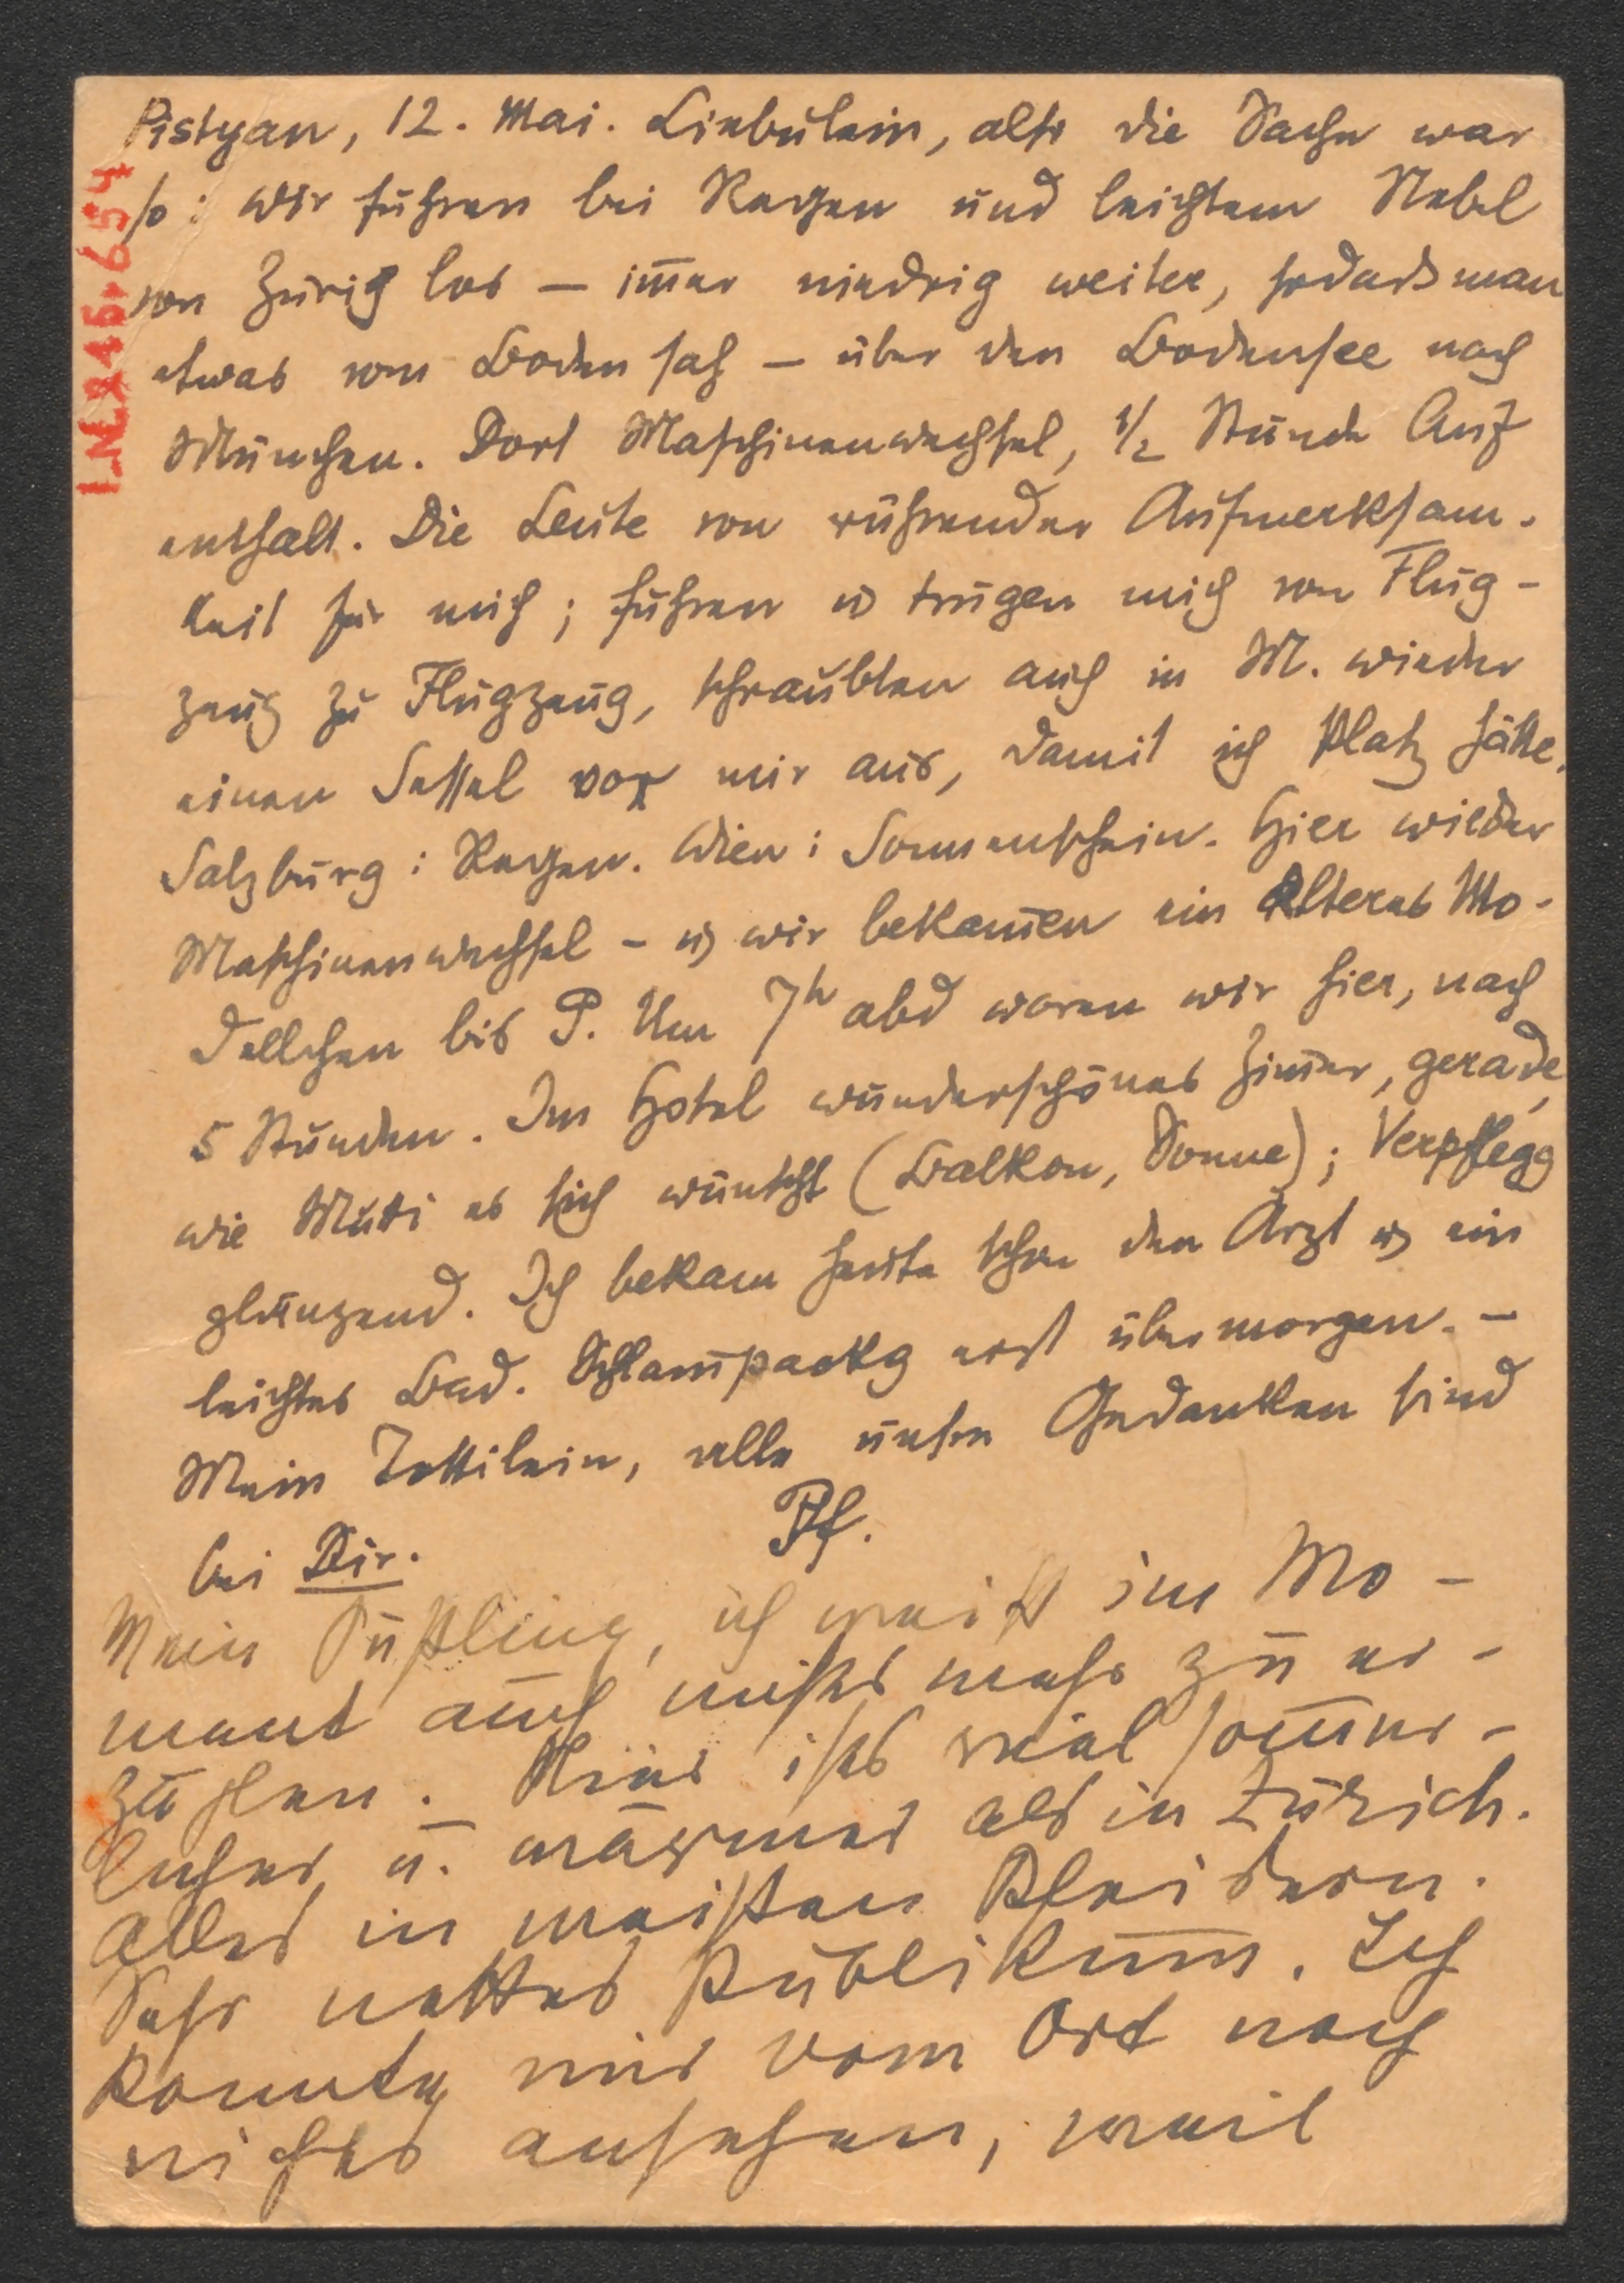 Pistyan, 12. Mai. Liebulein, also die Sache war
so: wir fuhren bei Regen und leichtem Nebel
von Zürich los – im̄er niedrig weiter, sodass man
etwas vom Boden sah – über den Bodensee nach
München. Dort Maschinenwechsel, 1/2 Stunde Auf
enthalt. Die Leute von rührender Aufmerksam-
keit für mich; fuhren u trugen mich von Flug-
zeug zu Flugzeug, schraubten auch in M. wieder
einen Sessel vor mir aus, damit ich Platz hätte.
Salzburg: Regen. Wien: Sonnenschein. Hier wieder
Maschinenwechsel – u wir bekam̄en ein älteres Mo-
dellchen bis P. Um 7h abd waren wir hier, nach
5 Stunden. Im Hotel wunderschönes Zim̄er, gerade,
wie Mutti es sich wünscht (Balkon, Sonne); Verpflegg
glänzend. Ich bekam heute schon den Arzt u ein
leichtes Bad. Schlam̄packg erst übermorgen. –
Mein Zottilein, alle unsre Gedanken sind
bei Dir.
Pf.
Mein Süssling, ich weiss im Mo-
ment auch nichts mehr zu er-
zählen. Hier ists viel som̄er-
licher u. wärmer als in Zürich.
Alles in weissen Kleidern.
Sehr nettes Publikum. Ich
konnte mir vom Ort noch
nichts ansehen, weil
I.N. 245.654